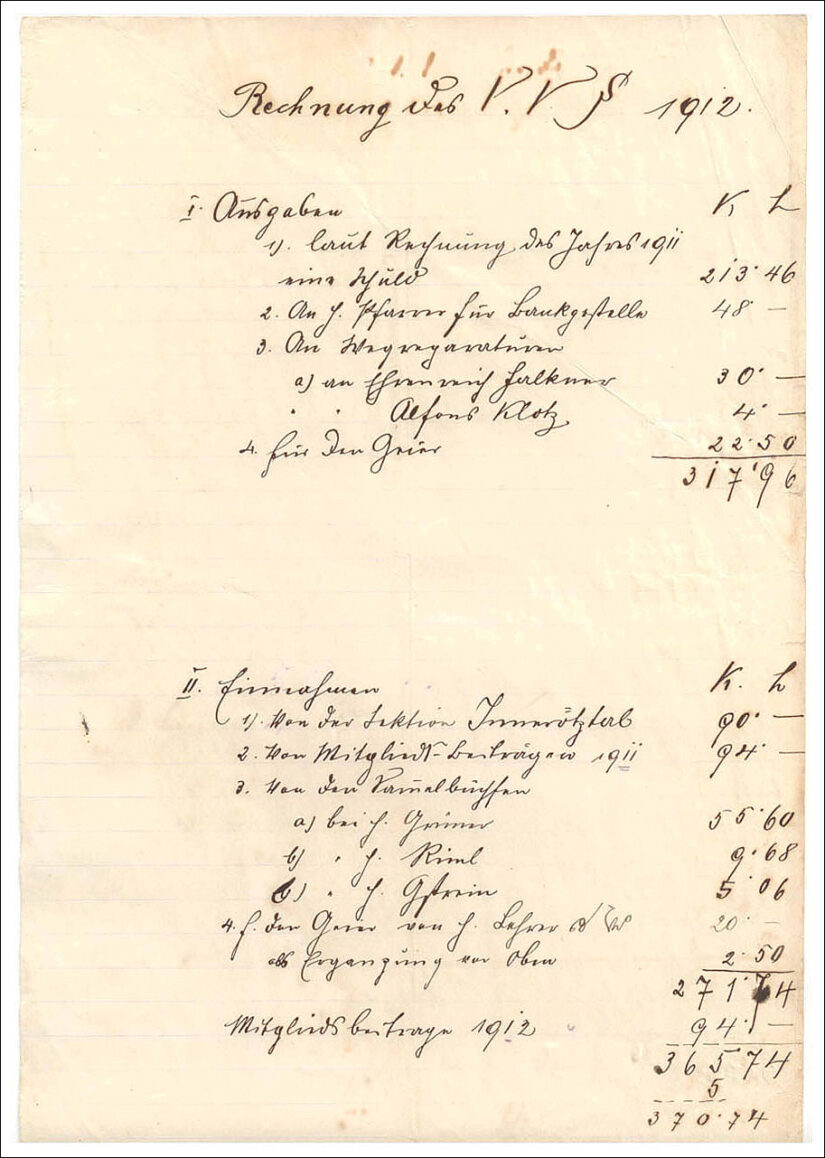 Rechnung des V. V. S 1912.
I. Ausgaben K h
1). laut Rechnung des Jahres 1911
eine Schuld 213·46
2. An H. Pfarrer für Bankgestelle 48 —
3. An Wegreparaturen
a) an Ehrenreich Falkner 30· —
" " Alfons Klotz 4· —
4. für den Geier 22·50
317·96
II. Einnahmen K. h
1). Von der Sektion Innerötztal 90· —
2. Von Mitglieds-Beiträgen 1911 94· —
3. Von den Sam̄elbüchsen
a) bei H. Grüner 55·60
b) " H. Riml 9·68
c) " H. Gstrein 5·06
4. f. den Geier von H. Lehrer 20· —
als Ergänzung von Oben 2·50
271·74
Mitgliedsbeiträge 1912 94· —
365 74
5
370·74